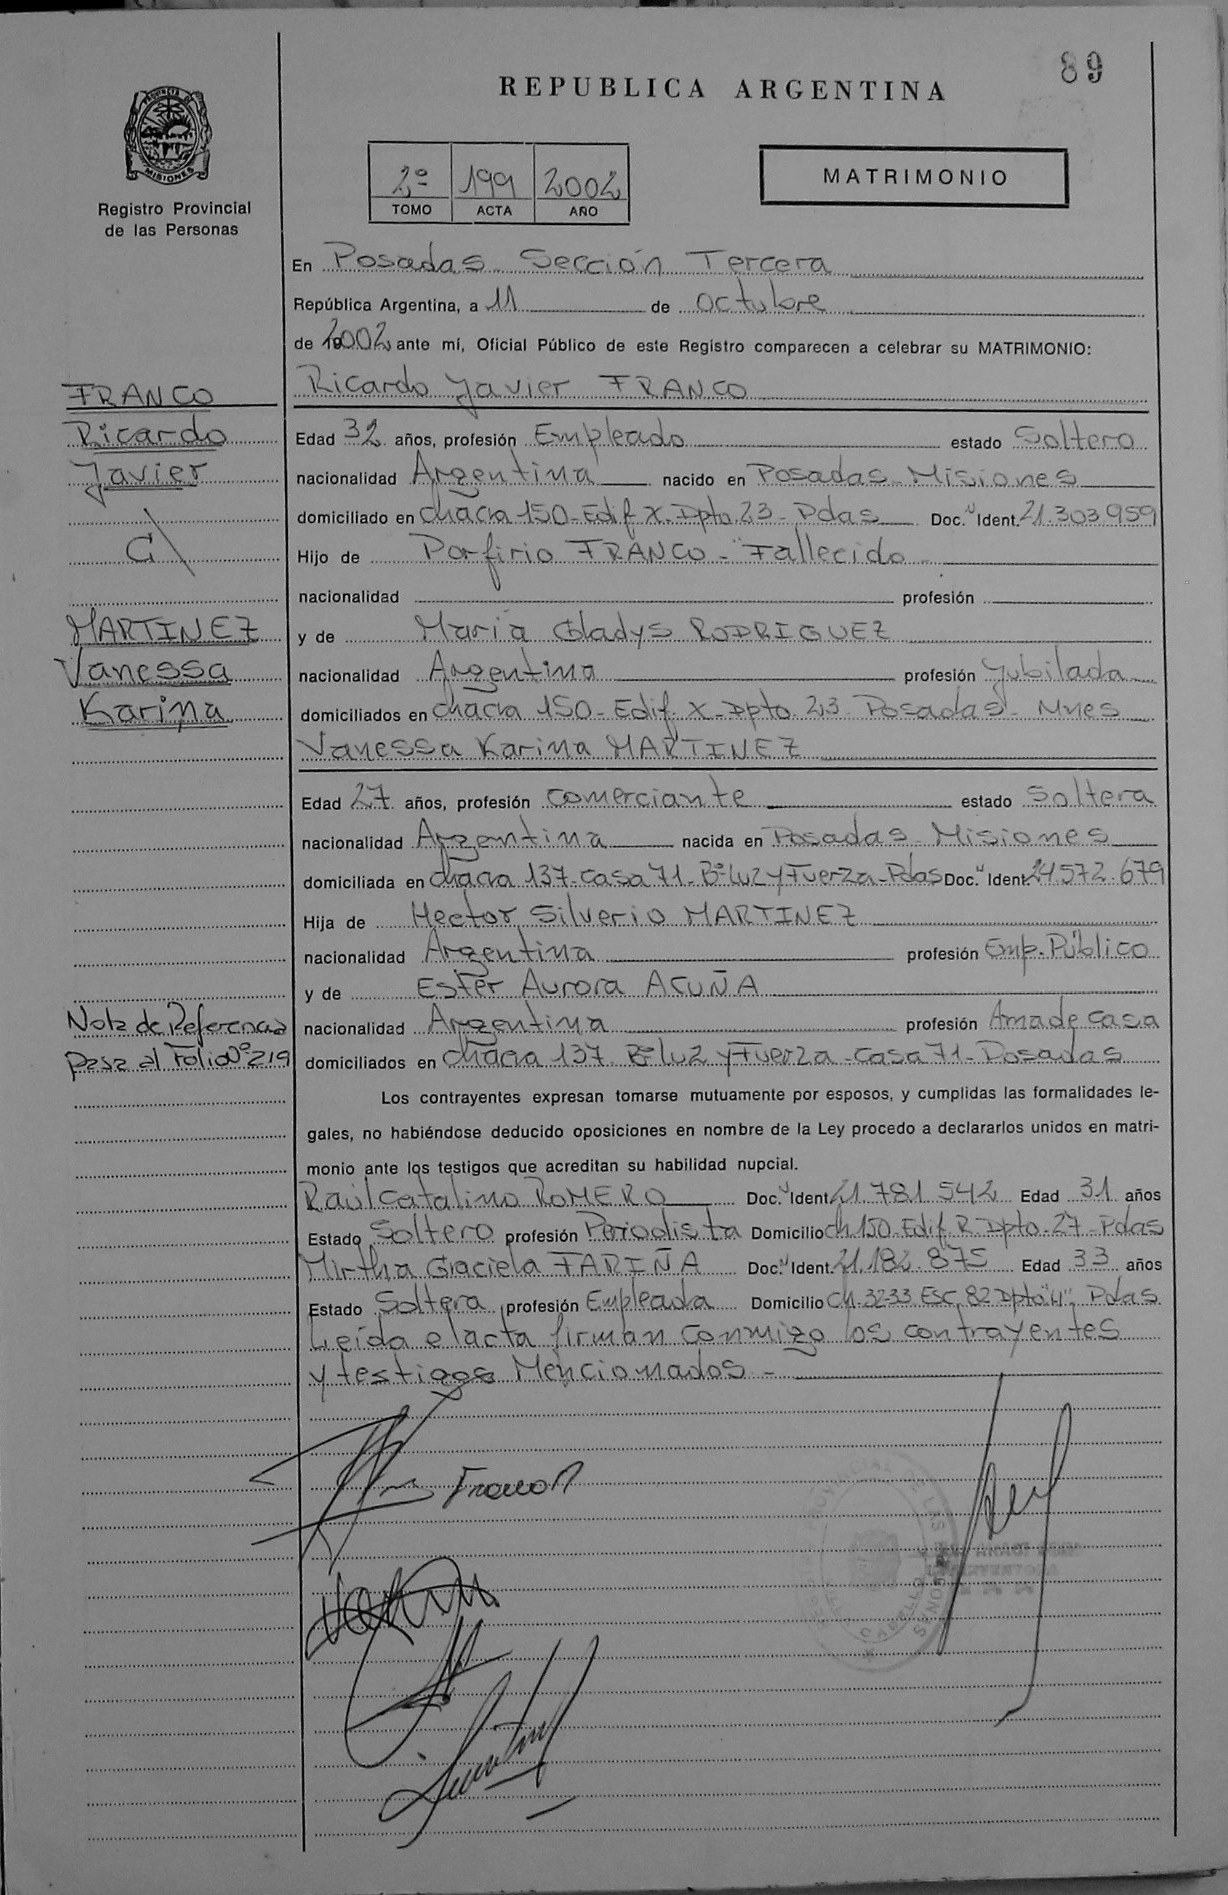 89
REPUBLICA ARGENTINA
PROVINCIA DE
MISIONES
Registro Provincial
de las Personas
2º 199 2002
TOMO ACTA AÑO
MATRIMONIO
En Posadas - Sección Tercera
República Argentina, a 11 de octubre
de 2002 ante mí, Oficial Público de este Registro comparecen a celebrar su MATRIMONIO:
FRANCO
Ricardo
Javier
C/
MARTINEZ
Vanessa
Karina
Ricardo Javier FRANCO
Edad 32 años, profesión Empleado estado Soltero
nacionalidad Argentina nacido en Posadas - Misiones
domiciliado en chacra 150 - Edif X - Dpto. 23 - Pdas Doc. Ident. 21.303.959
Hijo de Porfirio FRANCO - "Fallecido -
nacionalidad profesión
y de María Gladys RODRIGUEZ
nacionalidad Argentina profesión Jubilada
domiciliados en chacra 150 - Edif X - Dpto. 23 - Posadas - Mnes
Vanessa Karina MARTINEZ
Edad 27 años, profesión comerciante estado Soltera
nacionalidad Argentina nacida en Posadas - Misiones
domiciliada en chacra 137 - casa 71 - Bº Luz y Fuerza - Pdas Doc. Ident. 24.572.679
Hija de Hector Silverio MARTINEZ
nacionalidad Argentina profesión Emp. Público
y de Ester Aurora ACUÑA
nacionalidad Argentina profesión Ama de casa
domiciliados en chacra 137 Bº Luz y Fuerza - casa 71 - Posadas
Nota de Referencia
pasa al Folio Nº 219
Los contrayentes expresan tomarse mutuamente por esposos, y cumplidas las formalidades le-
gales, no habiéndose deducido oposiciones en nombre de la Ley procedo a declararlos unidos en matri-
monio ante los testigos que acreditan su habilidad nupcial.
Raúl Catalino ROMERO Doc. Ident. 21.781.542 Edad 31 años
Estado Soltero profesión Periodista Domicilio ch 150 - Edif. R - Dpto - 27 - Pdas
Mirtha Graciela FARIÑA Doc. Ident. 21.182.875 Edad 33 años
Estado Soltera profesión Empleada Domicilio ch. 32-33 Esc. 82 Dpto "H" Pdas
Leída el acta firman conmigo los contrayentes
y testigos Mencionados -
Franco